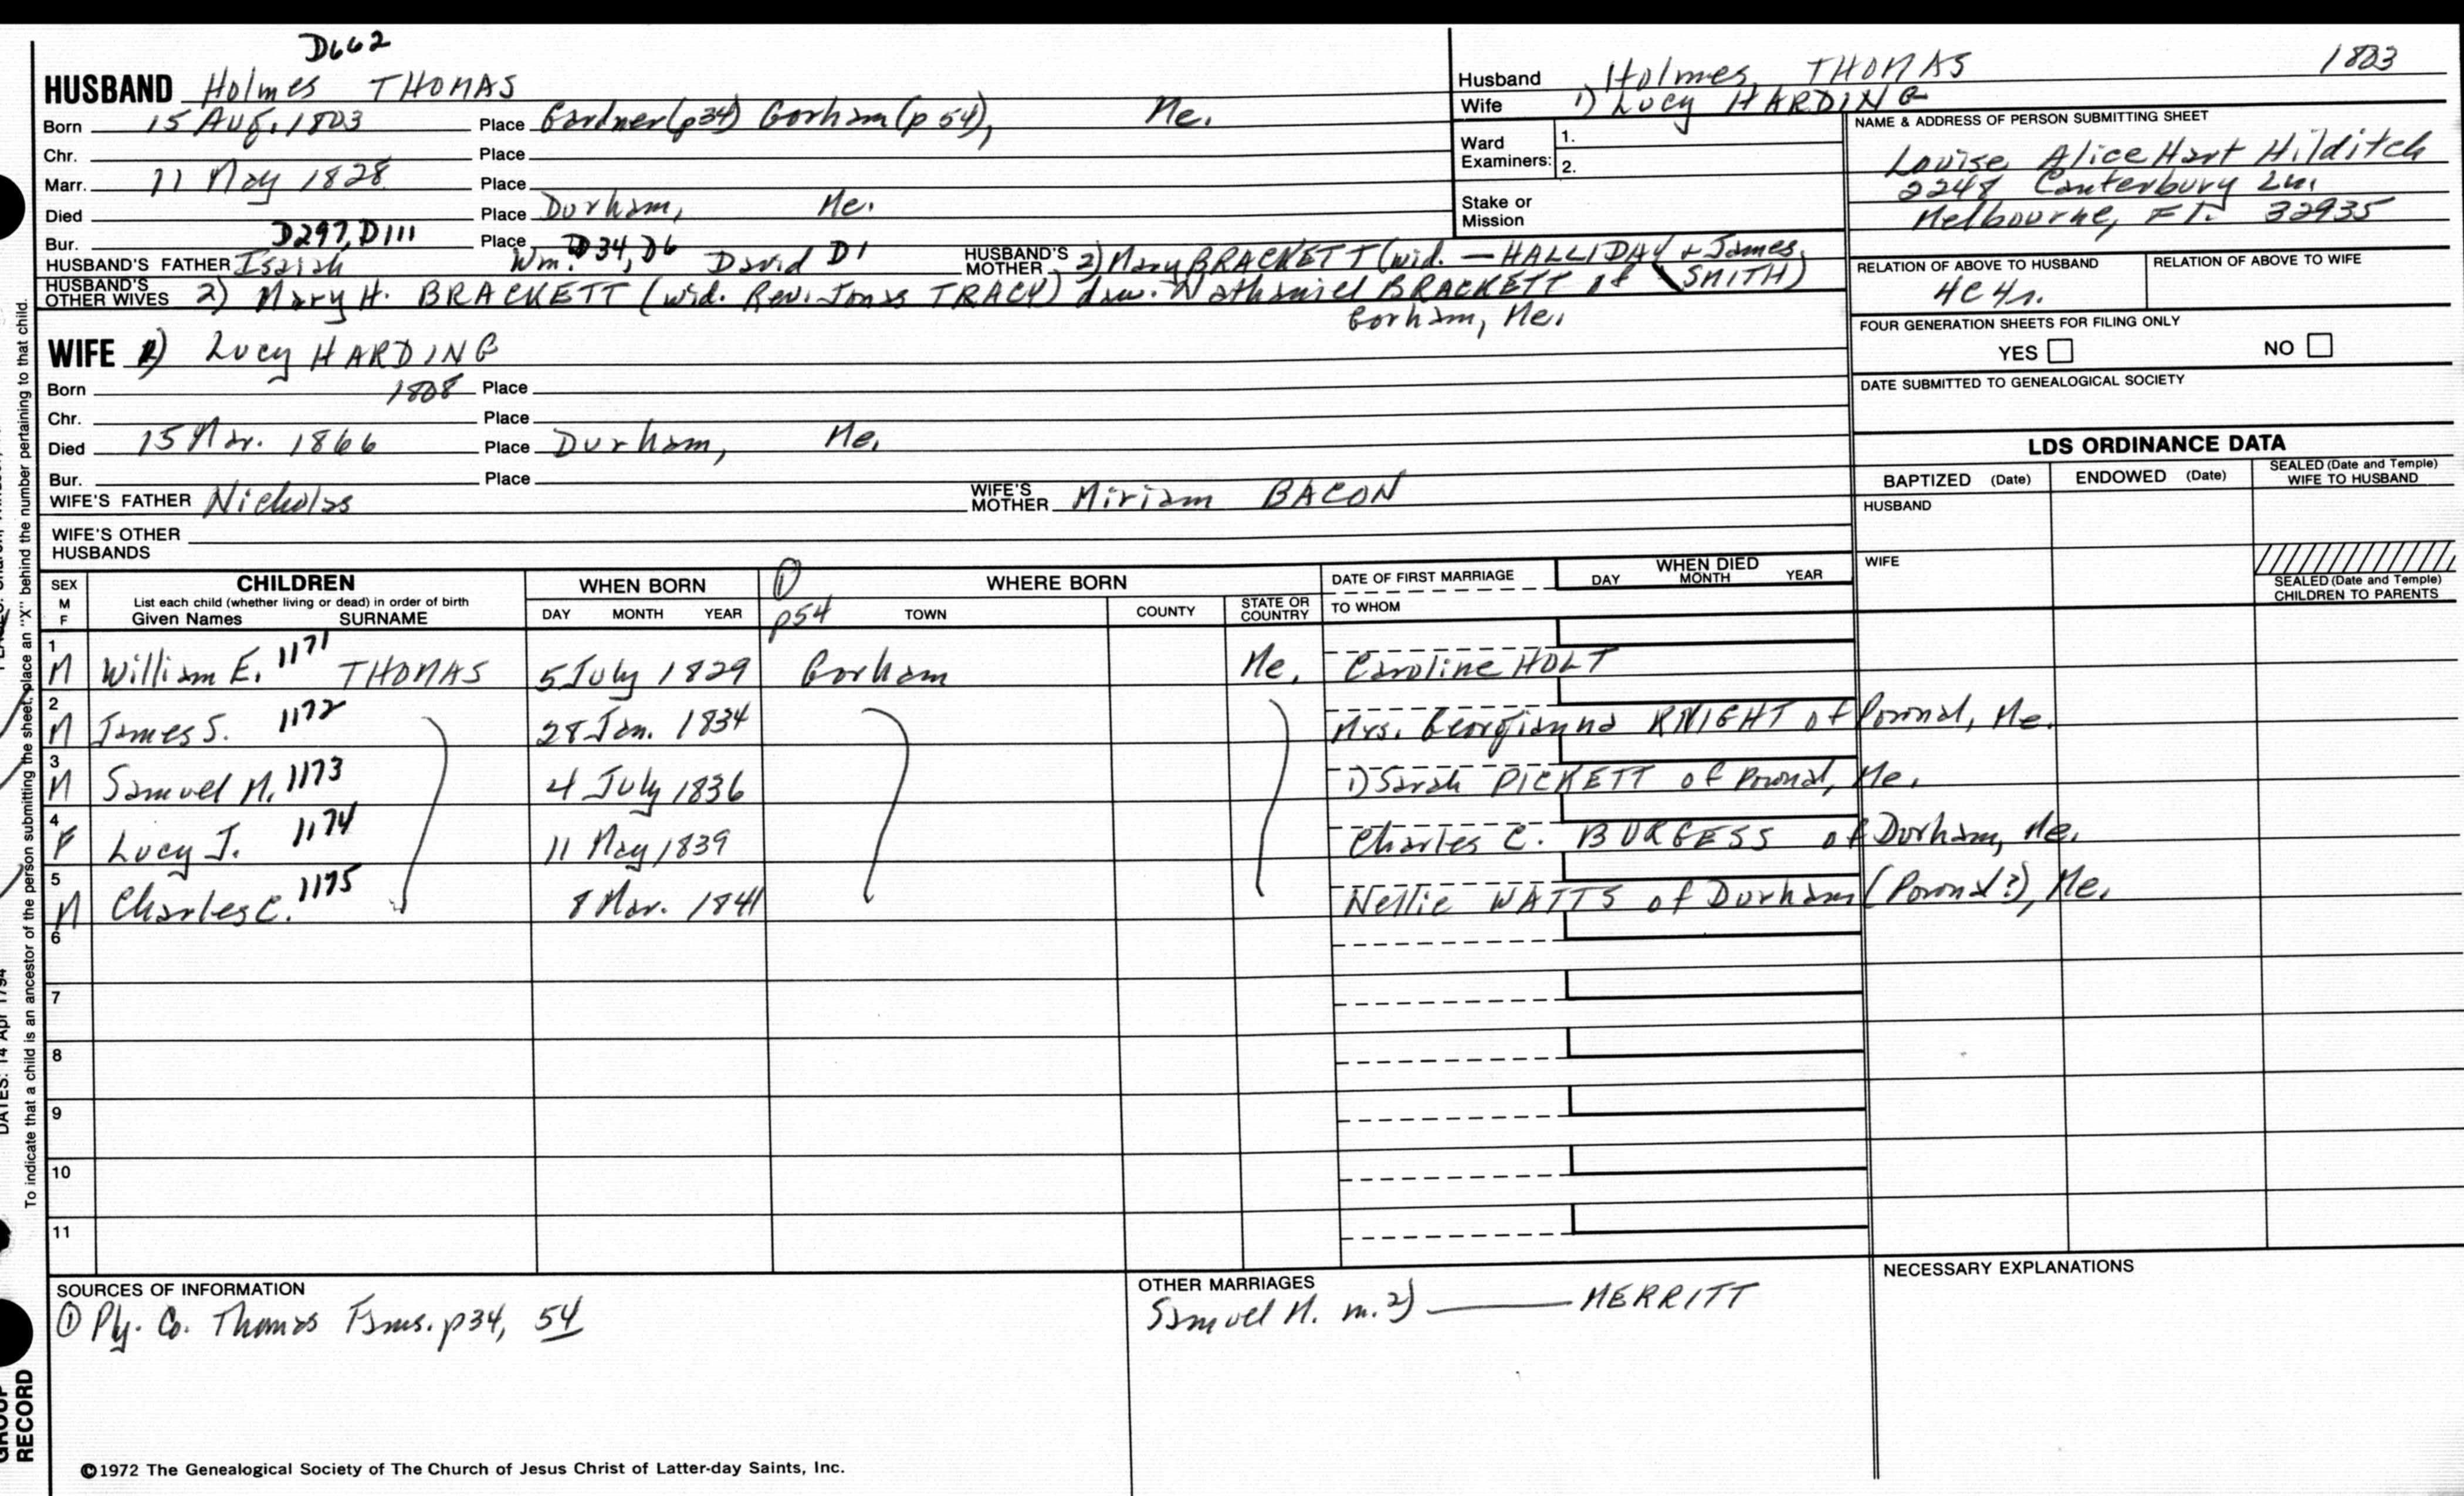 D662
HUSBAND Holmes THOMAS
Born 15 Aug. 1803 Place Gardner (p34) Gorham (p 54), Me.
Chr. Place
Marr. 11 May 1828 Place
Died Place Durham, Me.
Bur. Place
D297, D111 D34, D6 D1
HUSBAND'S FATHER Isaiah Wm. David HUSBAND'S MOTHER 2) Mary BRACKETT (wid. — HALLIDAY + James SMITH)
HUSBAND'S OTHER WIVES 2) Mary H. BRACKETT (wid. Rev. Jonas TRACY) dau. Nathaniel BRACKETT of
Gorham, Me.
WIFE 1) Lucy HARDING
Born 1808 Place
Chr. Place
Died 15 Mar. 1866 Place Durham, Me.
Bur. Place
WIFE'S FATHER Nicholas WIFE'S MOTHER Miriam BACON
WIFE'S OTHER HUSBANDS
Husband Holmes THOMAS 1803
Wife 1) Lucy HARDING
Ward Examiners: 1.
2.
Stake or Mission
NAME & ADDRESS OF PERSON SUBMITTING SHEET
Louise Alice Hart Hilditch
2248 Canterbury Ln.
Melbourne, FL. 32935
RELATION OF ABOVE TO HUSBAND RELATION OF ABOVE TO WIFE
4C4r.
FOUR GENERATION SHEETS FOR FILING ONLY
YES NO
DATE SUBMITTED TO GENEALOGICAL SOCIETY
LDS ORDINANCE DATA
BAPTIZED (Date) ENDOWED (Date) SEALED (Date and Temple) WIFE TO HUSBAND
HUSBAND
WIFE
SEALED (Date and Temple) CHILDREN TO PARENTS
SEX M F CHILDREN List each child (whether living or dead) in order of birth Given Names SURNAME WHEN BORN DAY MONTH YEAR ① p54 WHERE BORN TOWN COUNTY STATE OR COUNTRY DATE OF FIRST MARRIAGE TO WHOM WHEN DIED DAY MONTH YEAR
1 M William E. 1171 THOMAS 5 July 1829 Gorham Me. Caroline HOLT
2 M James S. 1172 28 Jan. 1834 Mrs. Georgianna KNIGHT of Pownal, Me.
3 M Samuel M. 1173 4 July 1836 1) Sarah PICKETT of Pownal, Me.
4 F Lucy J. 1174 11 May 1839 Charles C. BURGESS of Durham, Me.
5 M Charles C. 1175 8 Mar. 1841 Nellie WATTS of Durham (Pownal?), Me.
6
7
8
9
10
11
SOURCES OF INFORMATION
① Ply. Co. Thomas Fams. p34, 54
OTHER MARRIAGES
Samuel M. m. 2) ——— MERRITT
NECESSARY EXPLANATIONS
©1972 The Genealogical Society of The Church of Jesus Christ of Latter-day Saints, Inc.
To indicate that a child is an ancestor of the person submitting the sheet, place an "X" behind the number pertaining to that child.
DATES: 14 Apr 1794
GROUP
RECORD